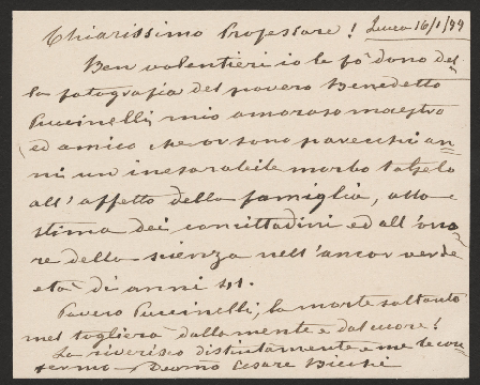 Chiarissimo Professore! Lucca 16/1/99
Ben volentieri io le fò dono del-
la fotografia del povero Benedetto
Puccinelli, mio amoroso maestro
ed amico che or sono parecchi an-
ni un inesorabile morbo tolselo
all'affetto della famiglia, alla
stima dei concittadini ed all'ono-
re della scienza nell'ancor verde
età di anni 41.
Povero Puccinelli, la morte soltanto
mel toglierà dalla mente e dal cuore!
La riverisco distintamente e me le con-
fermo Devmo Cesare Bicchi